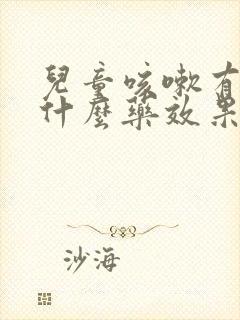 兒童咳嗽有
什麼藥效果
沙海